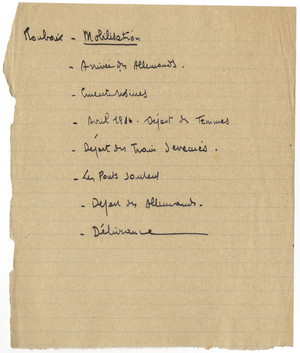 Roubaix - Mobilisation
- Arrivée des Allemands.
- 
- Avril 1916. Départ des Femmes
- Départ des Trains d'évacués.
- Les Ponts sautent
- Départ des Allemands.
- Délivrance